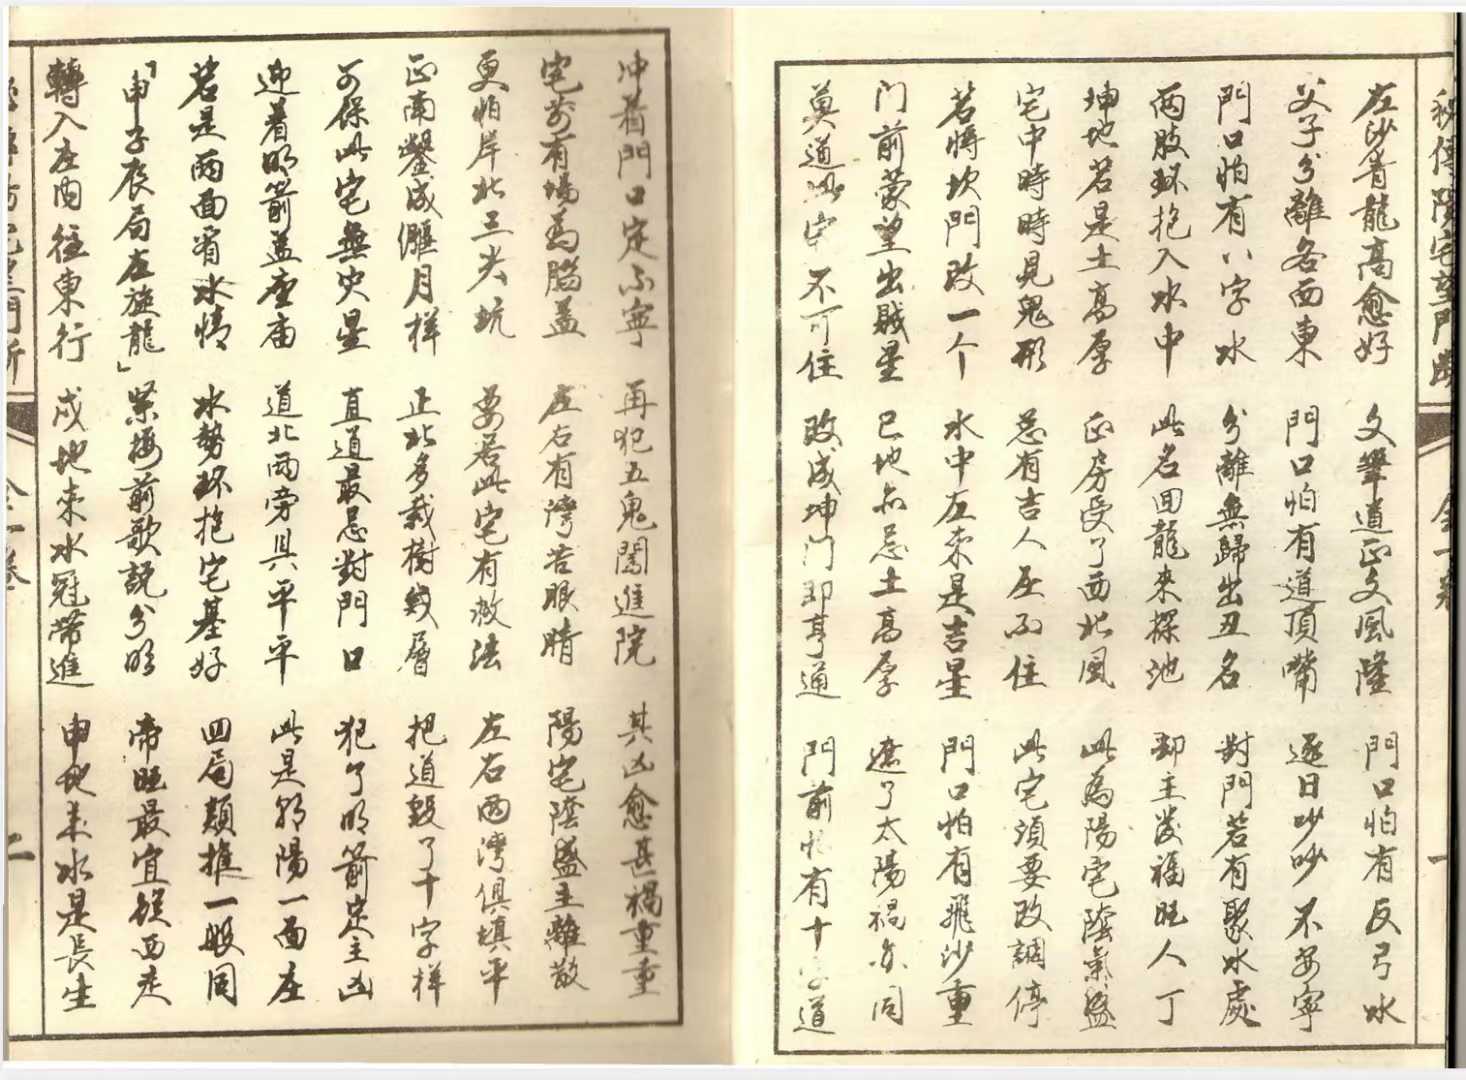 左沙青龍高愈好 文筆道正文風隆 門口怕有反弓水
父子分離各西東 門口怕有道頂嘴 逐日吵吵不安寧
門口怕有八字水 分離無歸出丑名 對門若有聚水處
两肢环抱入水中 此名回龍來探池 却主发福旺人丁
坤地若是土高厚 正房受了西北風 此為陽宅陰氣盛
宅中時時見鬼形 总有吉人在不住 此宅須要改調停
若將坎門改一个 水中左来是吉星 門口怕有飛沙重
门前蒙望出贱星 巳地亦忌土高厚 遮了太陽禍亦同
莫道此宅不可住 改成坤门即亨通 門前怕有十字道
冲着門口定不寧 再犯五鬼闖進院 其凶愈甚禍重重
宅前有場為腦盖 左右有湾若眼睛 陽宅陰盛主離散
更怕岸北三尖坑 要居此宅有救法 左右两湾俱填平
正南鑿成偃月样 正北多栽樹幾層 把道毀了十字样
可保此宅無灾星 直道最忌對門口 犯了明箭定主凶
迎着明箭盖座庙 道北两旁具平平 此是邻陽一面在
若是两面省水情 水勢环抱宅基好 四局類推一般同
「申子辰局左旋龍」 紧接前歌説分明 帝旺最宜候西走
轉入庄内往東行 戌地来水冠帶進 申地来水是長生
二